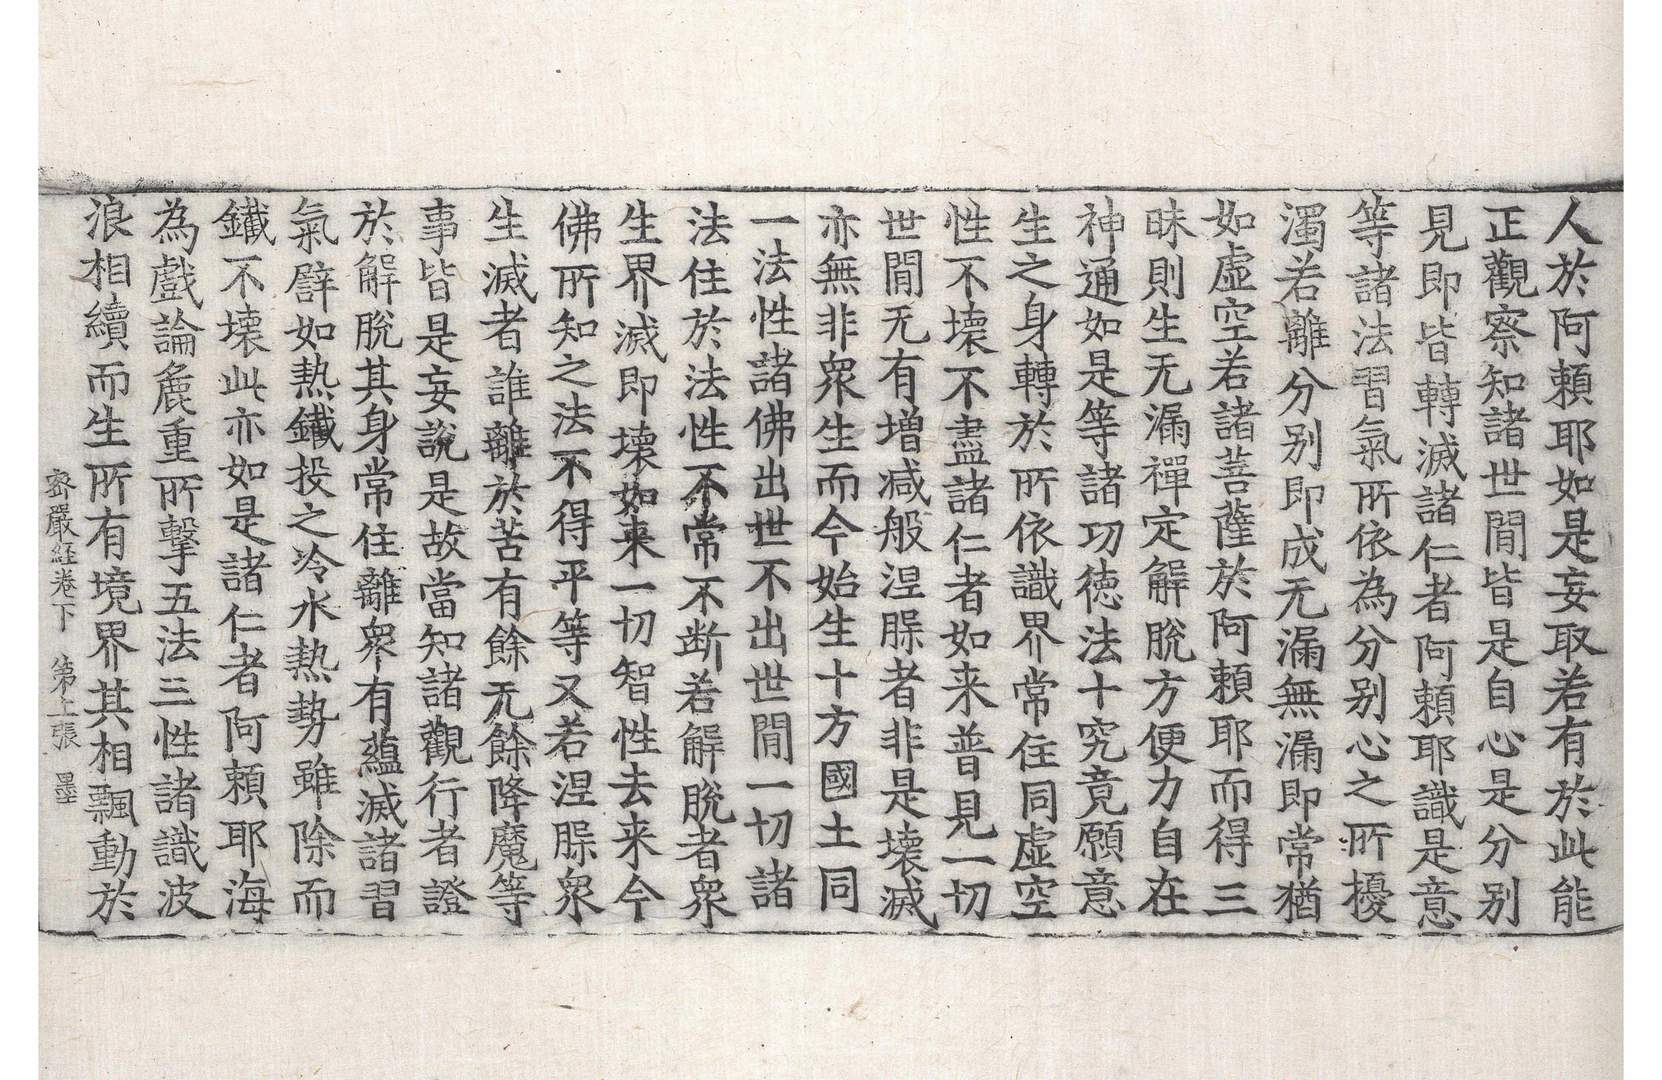 人於阿賴耶如是妄取若有於此能
正觀察知諸世間皆是自心是分別
見即皆轉滅諸仁者阿賴耶識是意
等諸法習氣所依為分別心之所擾
濁若離分別即成无漏無漏即常猶
如虛空若諸菩薩於阿賴耶而得三
昧則生无漏禪定解脫方便力自在
神通如是等諸功德法十究竟願意
生之身轉於所依識界常住同虛空
性不壞不盡諸仁者如来普見一切
世間无有增减般涅槃者非是壞滅
亦無非眾生而今始生十方國土同
一法性諸佛出世不出世間一切諸
法住於法性不常不断若解脫者眾
生界滅即壞如来一切智性去来今
佛所知之法不得平等又若涅槃眾
生滅者誰離於苦有餘无餘降魔等
事皆是妄說是故當知諸觀行者證
於解脫其身常住離眾有蘊滅諸習
氣譬如熱鐵投之冷水熱勢雖除而
鐵不壞此亦如是諸仁者阿賴耶海
為戲論麁重所擊五法三性諸識波
浪相續而生所有境界其相飄動於
密嚴経卷下 第上張 墨